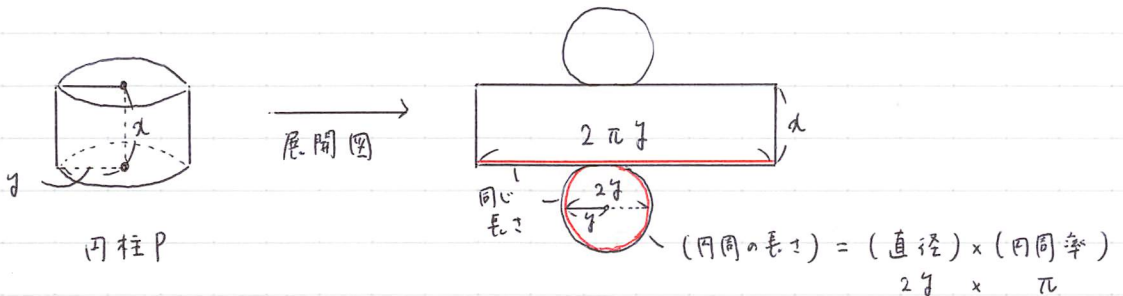 x
y
円柱P
展開図
2πy
x
同じ
長さ
2y
y
(円周の長さ) = (直径) × (円周率)
2y × π